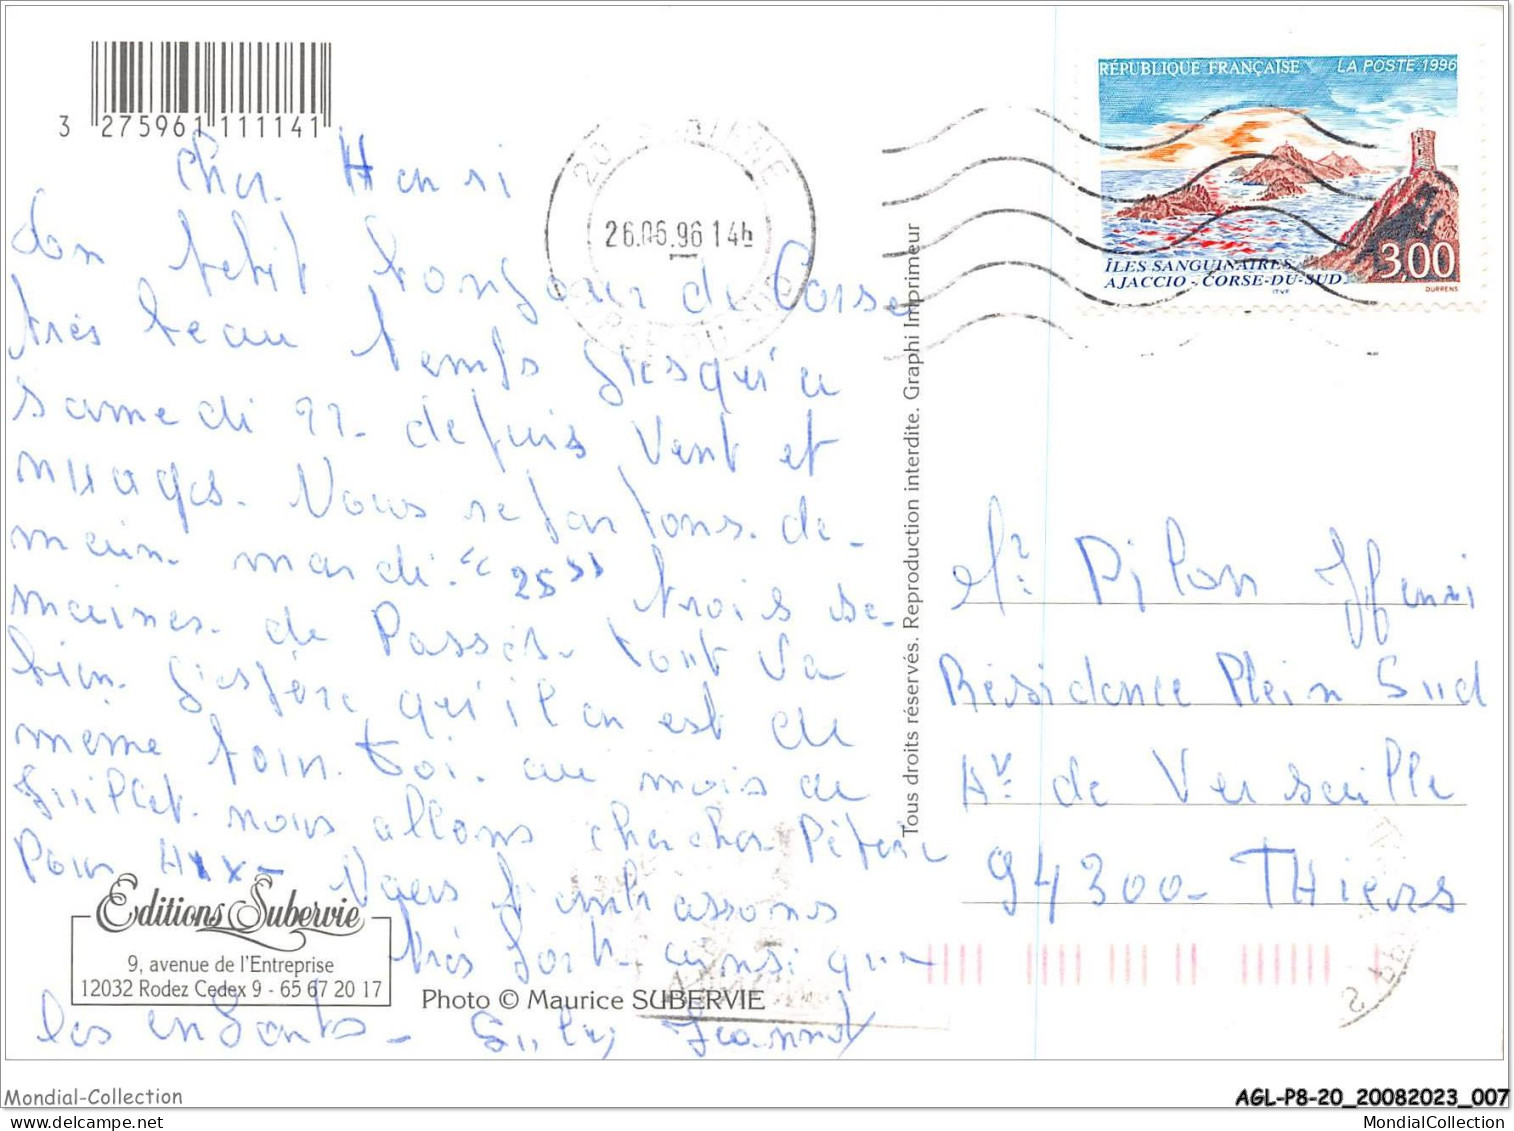 3 275961 111141
RÉPUBLIQUE FRANÇAISE LA POSTE 1996
3,00
ÎLES SANGUINAIRES
AJACCIO - CORSE-DU-SUD
DURRENS
26.06.96 14h
Cher Henri
Un petit bonjour de Corse
très beau temps jusqu'a
samedi 22. depuis vent et
nuages. Nous repartons de-
main mardi "25" trois se-
maines de Passés. tout va
bien j'espère qu'il en est de
même pour toi. au mois de
Juillet. nous allons chercher
Pour Aix - Nous t'embrassons
très fort ainsi que
les enfants - Suzy Jeannot
Mr. Pilon Henri
Résidence Plein Sud
Av. de Verseille
94300 - THiers
Tous droits réservés. Reproduction interdite. Graphi Imprimeur
Editions Subervie
9, avenue de l'Entreprise
12032 Rodez Cedex 9 - 65 67 20 17
Photo © Maurice SUBERVIE
Mondial-Collection
AGL-P8-20_20082023_007
MondialCollection